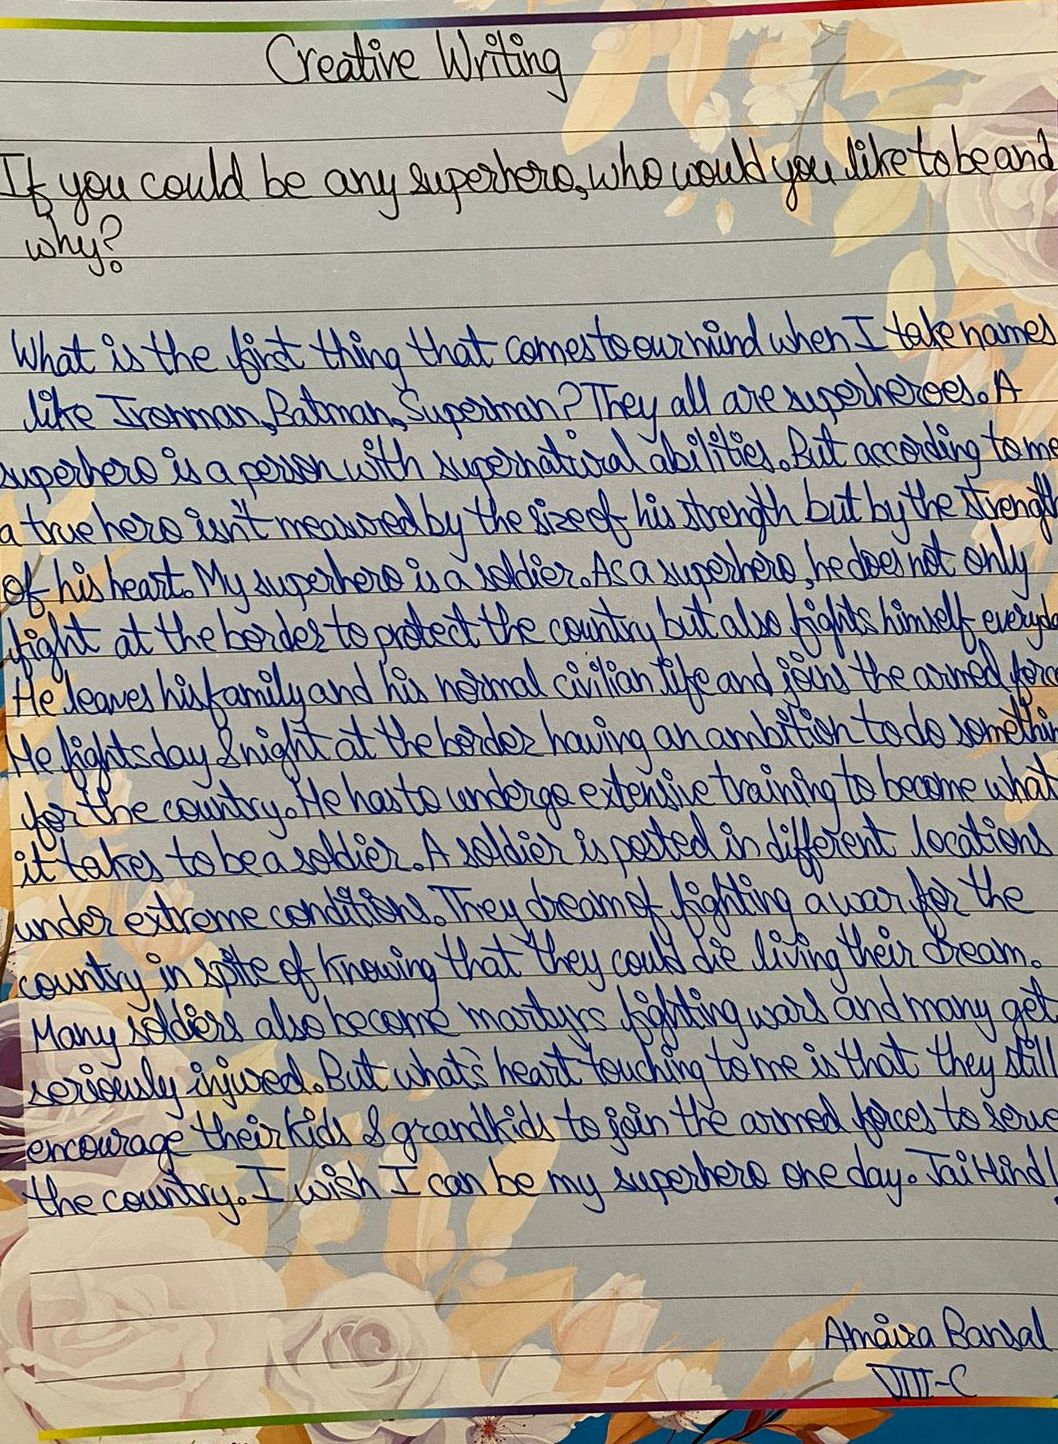 Creative Writing
If you could be any superhero, who would you like to be and
why?
What is the first thing that comes to our mind when I take names
like Ironman, Batman, Superman? They all are superheroes. A
superhero is a person with supernatural abilities. But according to me
a true hero isn't measured by the size of his strength but by the strength
of his heart. My superhero is a soldier. As a superhero, he does not only
fight at the border to protect the country but also fights himself everyda
He leaves his family and his normal civilian life and joins the armed forc
He fights day & night at the border having an ambition to do somethin
for the country. He has to undergo extensive training to become what
it takes to be a soldier. A soldier is posted in different locations
under extreme conditions. They dream of fighting a war for the
country in spite of knowing that they could die living their dream.
Many soldiers also become martyrs fighting wars and many get
seriously injured. But what's heart touching to me is that they still
encourage their kids & grandkids to join the armed forces to serve
the country. I wish I can be my superhero one day. Jai Hind!
Amaira Bansal
VIII-C